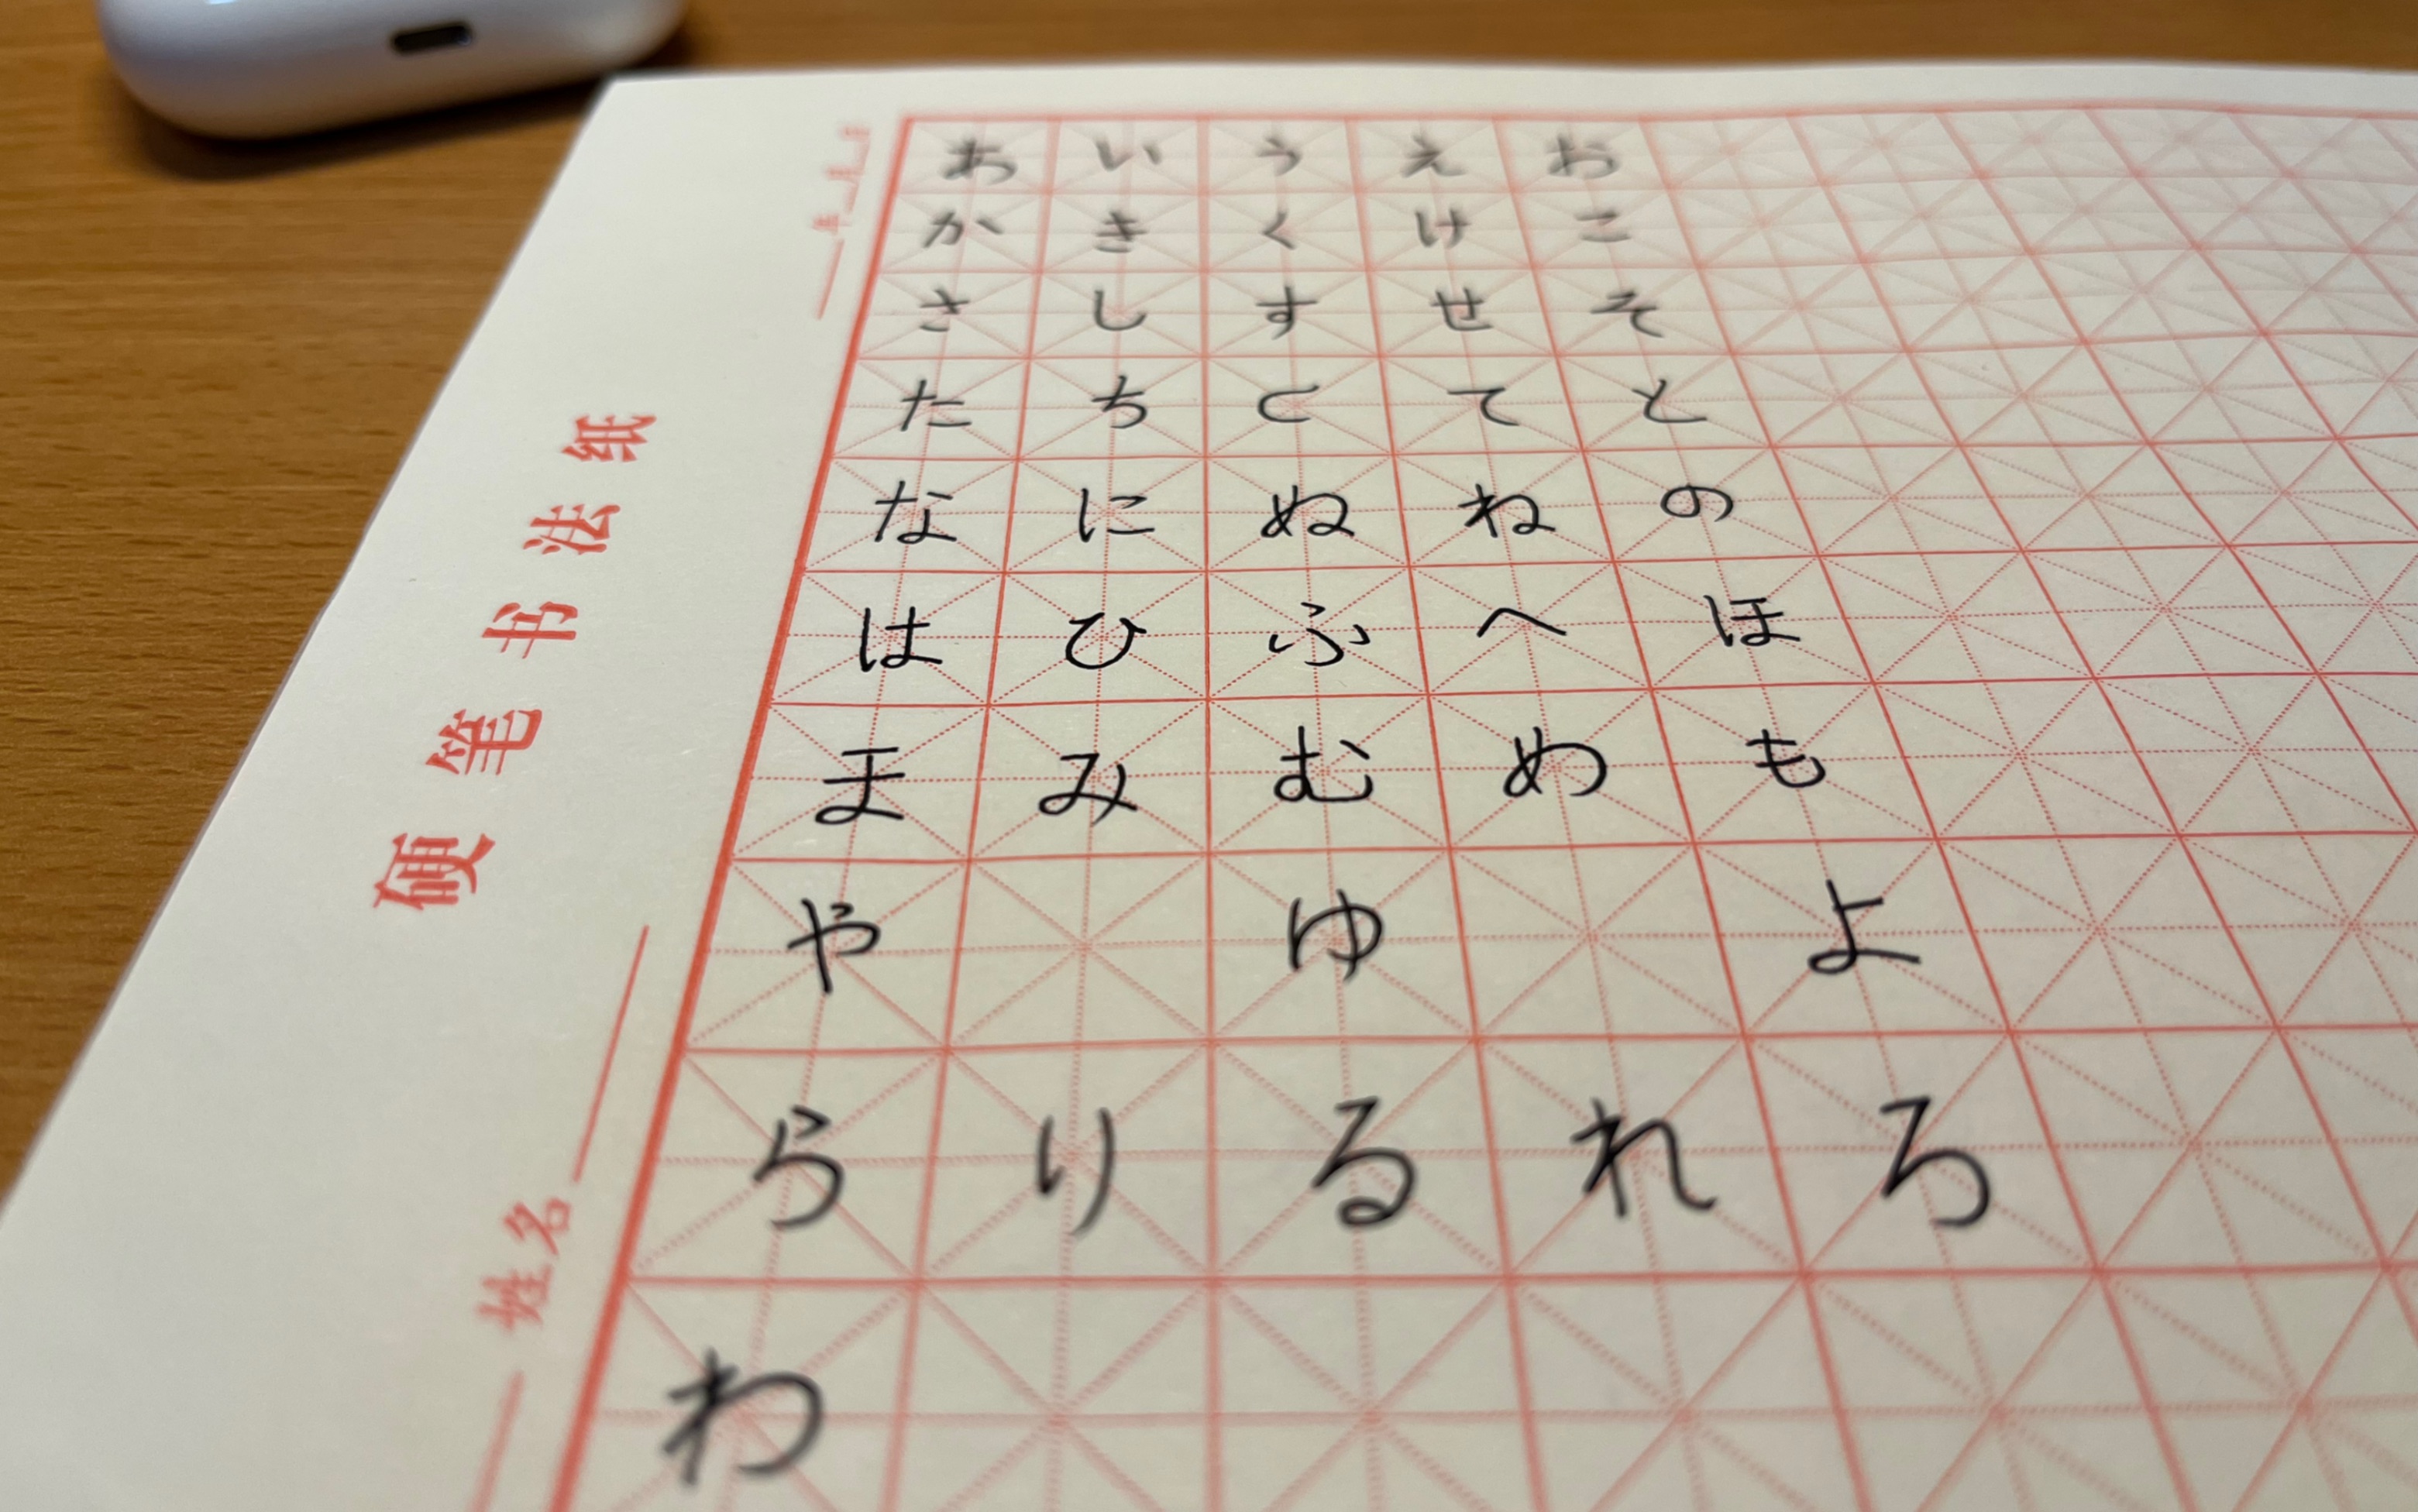 あ い う え お
か き く け こ
さ し す せ そ
た ち つ て と
な に ぬ ね の
は ひ ふ へ ほ
ま み む め も
や ゆ よ
ら り る れ ろ
わ
硬笔书法纸
姓名